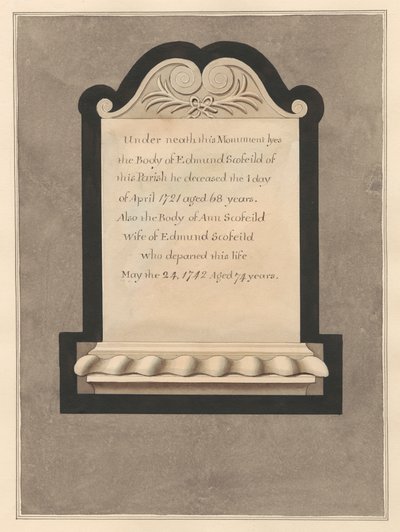 Under neath this Monument lyes
the Body of Edmund Scofeild of
this Parish he deceased the 1 day
of April 1721 aged 68 years.
Also the Body of Ann Scofeild
Wife of Edmund Scofeild
who departed this life
May the 24, 1742 Aged 74 years.